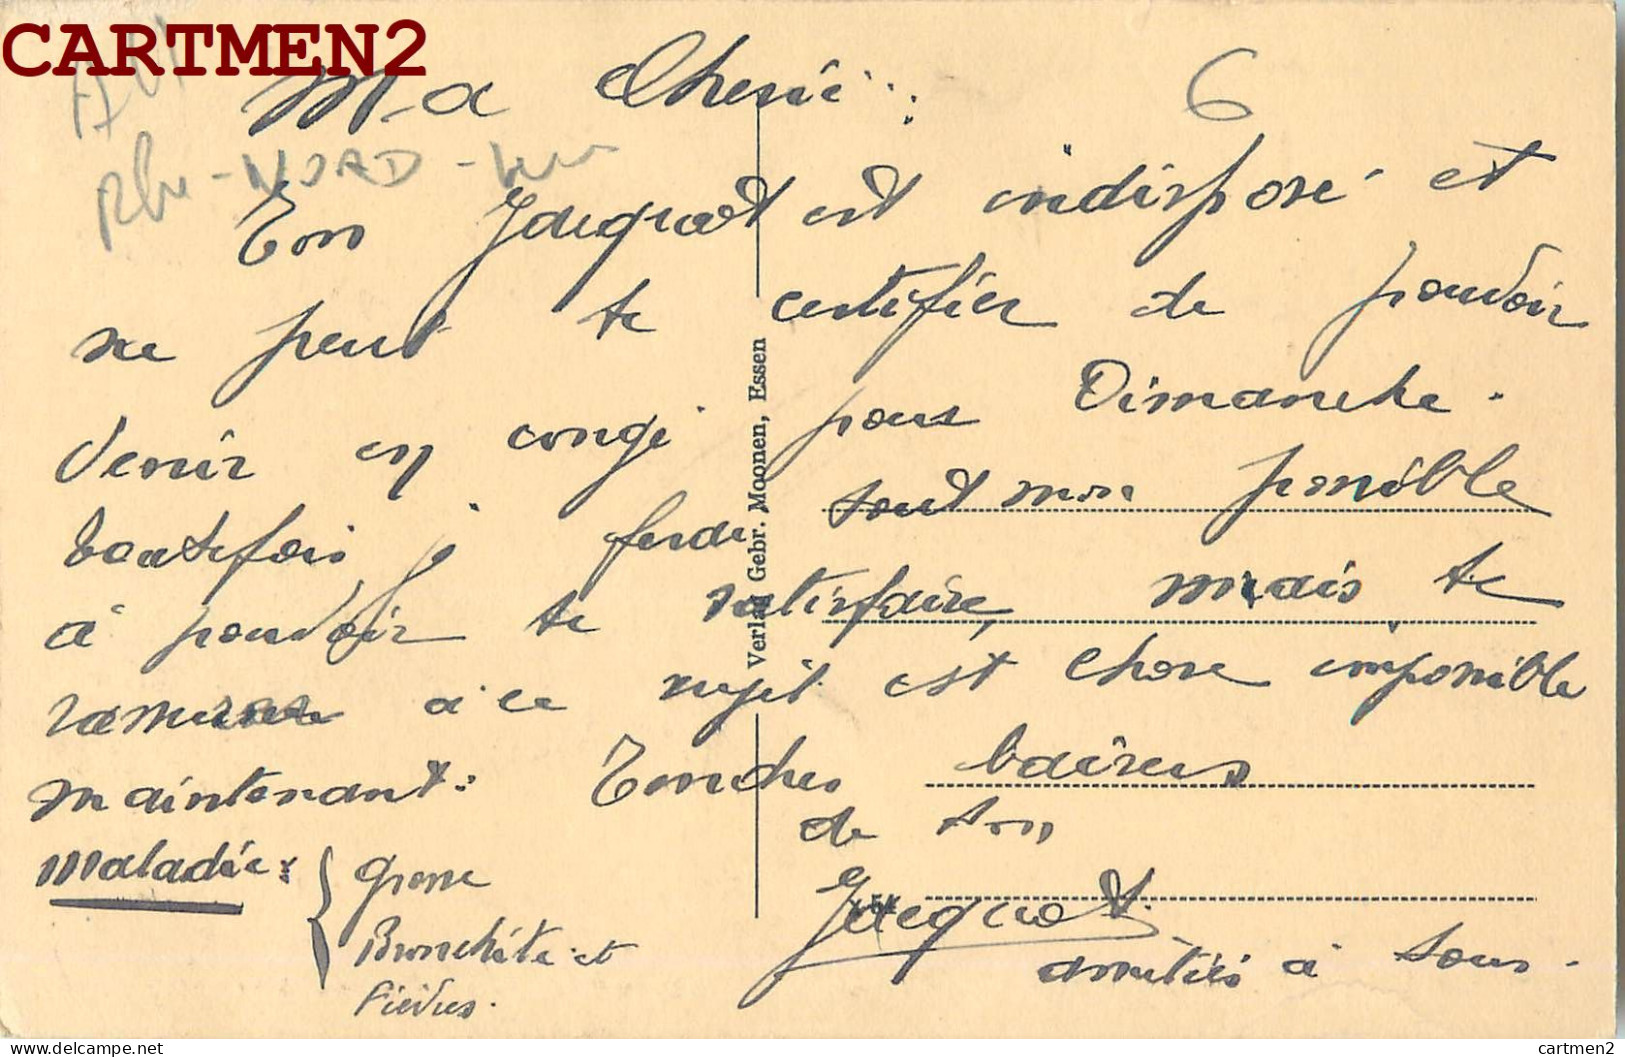 CARTMEN2
All
Rhe - NORD -
6
Ma Cherie :
Ton Jacquot est indisposé et
ne peut te certifier de pouvoir
Venir en congé pour Dimanche.
toutefois j ferde tout mon possible
à pouvoir te satisfaire, mais te
à ce sujet est chose impossible
maintenant: Tendres baisers
de ton
Maladie: { Grosse
Bronchite et
Fièvres.
Jacquot.
amitiés à tous.
Verlag Gebr. Moonen, Essen
Delcampe.net
cartmen2